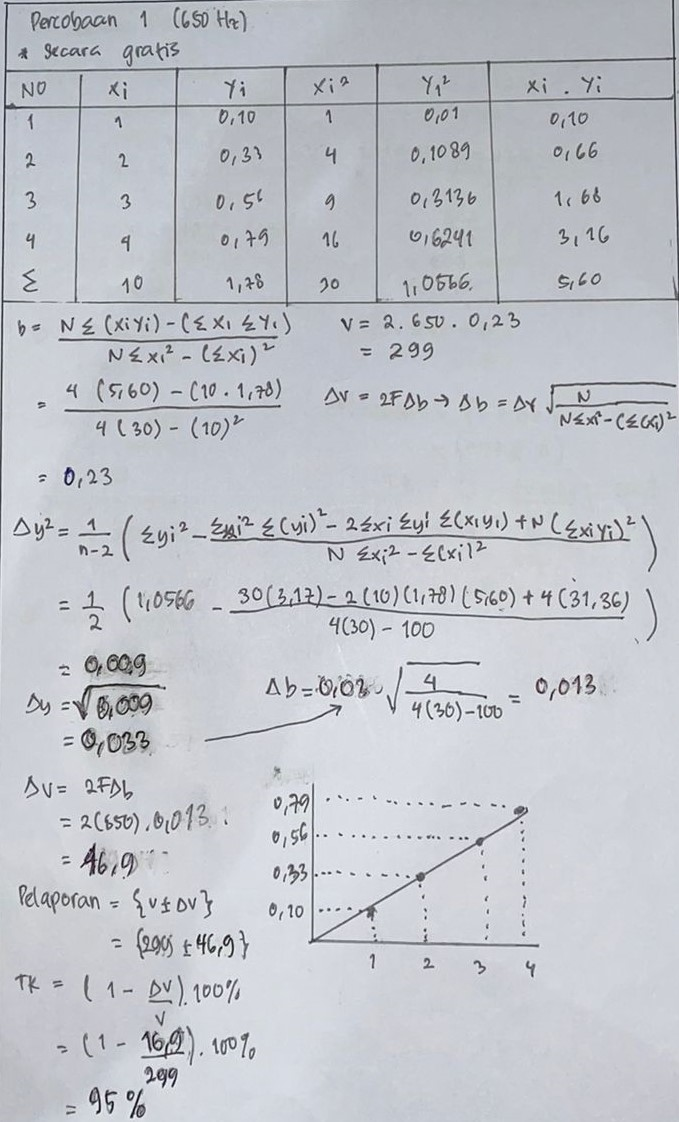 Percobaan 1 (650 Hz)
* Secara grafis
NO Xi Yi Xi² Yi² Xi . Yi
1 1 0,10 1 0,01 0,10
2 2 0,33 4 0,1089 0,66
3 3 0,56 9 0,3136 1,68
4 4 0,79 16 0,6241 3,16
Σ 10 1,78 30 1,0566 5,60
b = N Σ (XiYi) - (Σ Xi Σ Yi) / N Σ Xi² - (Σ Xi)²
V = 2 . 650 . 0,23
= 299
= 4 (5,60) - (10 . 1,78) / 4 (30) - (10)²
ΔV = 2FΔb → Δb = Δy √ N / NΣxi² - (Σxi)²
= 0,23
Δy² = 1/n-2 ( Σyi² - Σxi² Σ(yi)² - 2Σxi Σyi Σ(xiyi) + N (Σxiyi)² / N Σxi² - Σ(xi)² )
= 1/2 ( 1,0566 - 30 (3,17) - 2 (10) (1,78) (5,60) + 4 (31,36) / 4(30) - 100 )
= 0,009
Δy = √0,009
= 0,033
Δb = 0,03 √ 4 / 4(30) - 100 = 0,013
ΔV = 2FΔb
= 2(650) . 0,013
= 46,9
Pelaporan = {V ± ΔV}
= {299 ± 46,9}
TK = (1 - ΔV/V) . 100%
= (1 - 16,9/299) . 100%
= 95 %
0,79
0,56
0,33
0,10
1 2 3 4